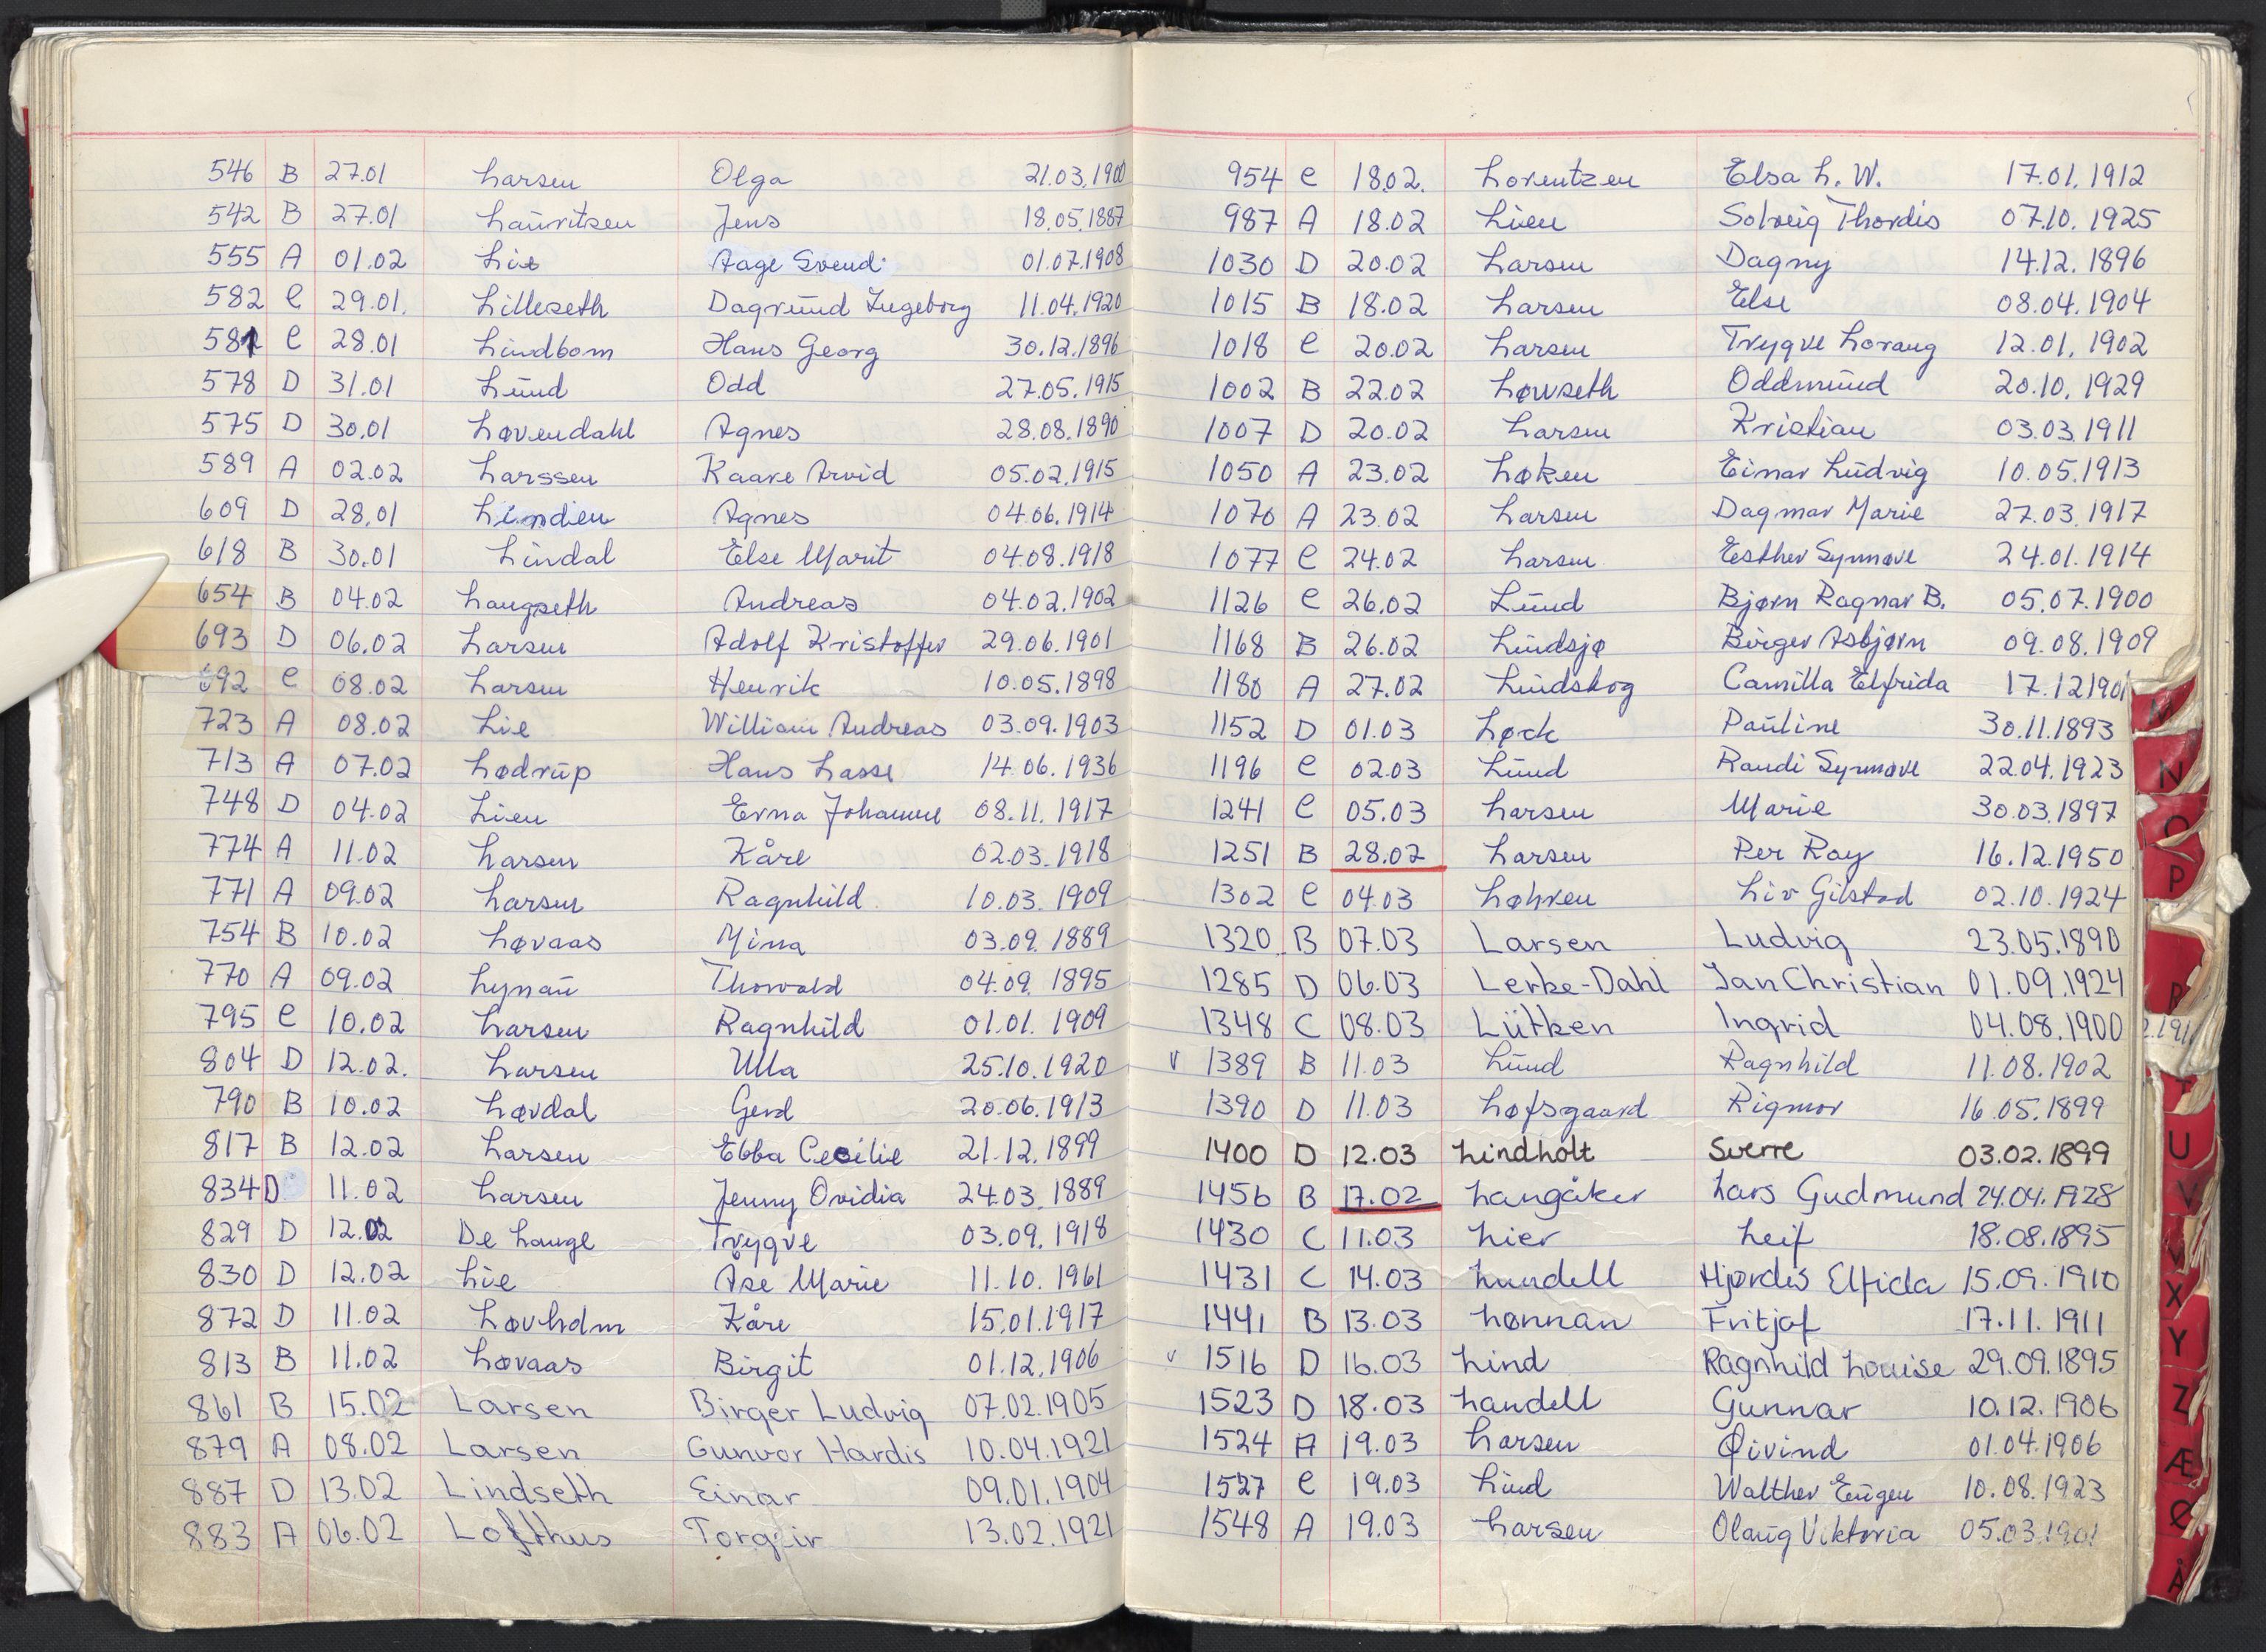 546 B 27.01 Larsen Olga 21.03.1900
542 B 27.01 Lauritzen Jens 18.05.1887
555 A 01.02 Lie Aage Svend 01.07.1908
582 C 29.01. Lilleseth Dagrund Ingeborg 11.04.1920
581 C 28.01 Lindbom Hans Georg 30.12.1896
578 D 31.01 Lund Odd 27.05.1915
575 D 30.01 Løvendahl Agnes 28.08.1890
589 A 02.02 Larssen Kaare Arvid 05.02.1915
609 D 28.01 Lindien Agnes 04.06.1914
618 B 30.01 Lindal Else Marit 04.08.1918
654 B 04.02 Langseth Andreas 04.02.1902
693 D 06.02 Larsen Adolf Kristoffer 29.06.1901
692 C 08.02 Larsen Henrik 10.05.1898
723 A 08.02 Lie William Andreas 03.09.1903
713 A 07.02 Lødrup Hans Lasse 14.06.1936
748 D 04.02 Lien Erna Johanne 08.11.1917
774 A 11.02 Larsen Kåre 02.03.1918
771 A 09.02 Larsen Ragnhild 10.03.1909
754 B 10.02 Løvaas Mina 03.09.1889
770 A 09.02 Lynau Thorvald 04.09.1895
795 C 10.02 Larsen Ragnhild 01.01.1909
804 D 12.02. Larsen Ulla 25.10.1920
790 B 10.02 Løvdal Gerd 20.06.1913
817 B 12.02 Larsen Ebba Cecilie 21.12.1899
834 D 11.02 Larsen Jenny Ovidia 24.03.1889
829 D 12.02 De Lange Trygve 03.09.1918
830 D 12.02 Lie Åse Marie 11.10.1961
872 D 11.02 Løvholm Kåre 15.01.1917
813 B 11.02 Løvaas Birgit 01.12.1906
861 B 15.02 Larsen Birger Ludvig 07.02.1905
879 A 08.02 Larsen Gunvor Hardis 10.04.1921
887 D 13.02 Lindseth Einar 09.01.1904
883 A 06.02 Lofthus Torgeir 13.02.1921
954 C 18.02. Lorentzen Elsa L. W. 17.01.1912
987 A 18.02 Lien Solveig Thordis 07.10.1925
1030 D 20.02 Larsen Dagny 14.12.1896
1015 B 18.02 Larsen Else 08.04.1904
1018 C 20.02 Larsen Trygve Lorang 12.01.1902
1002 B 22.02 Løwseth Oddmund 20.10.1929
1007 D 20.02 Larsen Kristian 03.03.1911
1050 A 23.02 Løken Einar Ludvig 10.05.1913
1070 A 23.02 Larsen Dagmar Marie 27.03.1917
1077 C 24.02 Larsen Esther Synnøve 24.01.1914
1126 C 26.02 Lund Bjørn Ragnar B. 05.07.1900
1168 B 26.02 Lindsjø Birger Asbjørn 09.08.1909
1180 A 27.02 Lindskog Camilla Elfrida 17.12.1901
1152 D 01.03 Løck Pauline 30.11.1893
1196 C 02.03 Lund Randi Synnøve 22.04.1923
1241 C 05.03 Larsen Marie 30.03.1897
1251 B 28.02 Larsen Per Roy 16.12.1950
1302 C 04.03 Løhren Liv Gilstad 02.10.1924
1320 B 07.03 Larsen Ludvig 23.05.1890
1285 D 06.03 Lerke-Dahl Jan Christian 01.09.1924
1348 C 08.03 Lütken Ingrid 04.08.1900
v 1389 B 11.03 Lund Ragnhild 11.08.1902
1390 D 11.03 Løfsgaard Rigmor 16.05.1899
1400 D 12.03 Lindholt Sverre 03.02.1899
1456 B 17.02 Langåker Lars Gudmund 24.04.1928
1430 C 11.03 Lier Leif 18.08.1895
1431 C 14.03 Lundell Hjørdis Elfida 15.09.1910
1441 B 13.03 Lønnan Fritjof 17.11.1911
v 1516 D 16.03 Lind Ragnhild Louise 29.09.1895
1523 D 18.03 Landell Gunnar 10.12.1906
1524 A 19.03 Larsen Øivind 01.04.1906
1527 C 19.03 Lind Walther Eugen 10.08.1923
1548 A 19.03 Larsen Olaug Viktoria 05.03.1901
M
N
O
P
R
T
U
V
X
Y
Z
Æ
Ø
Å